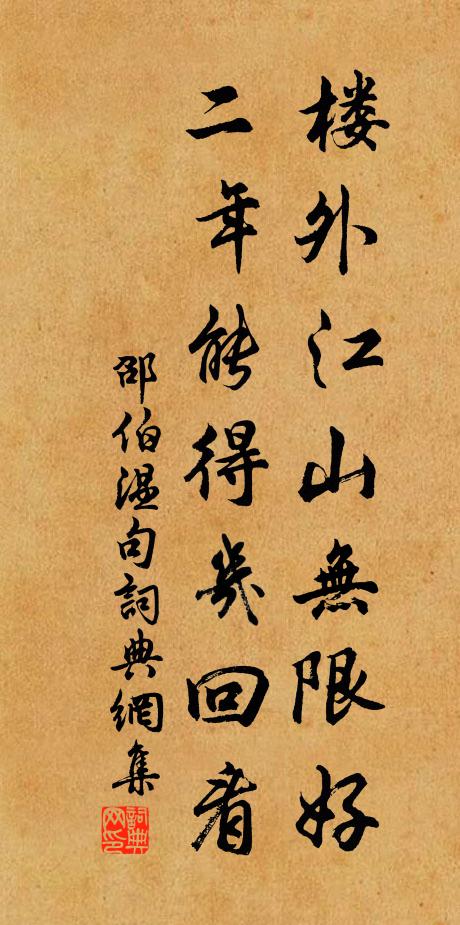 楼外江山無限好
二年能得幾回看
邵伯温句詞典網集
詞典網印